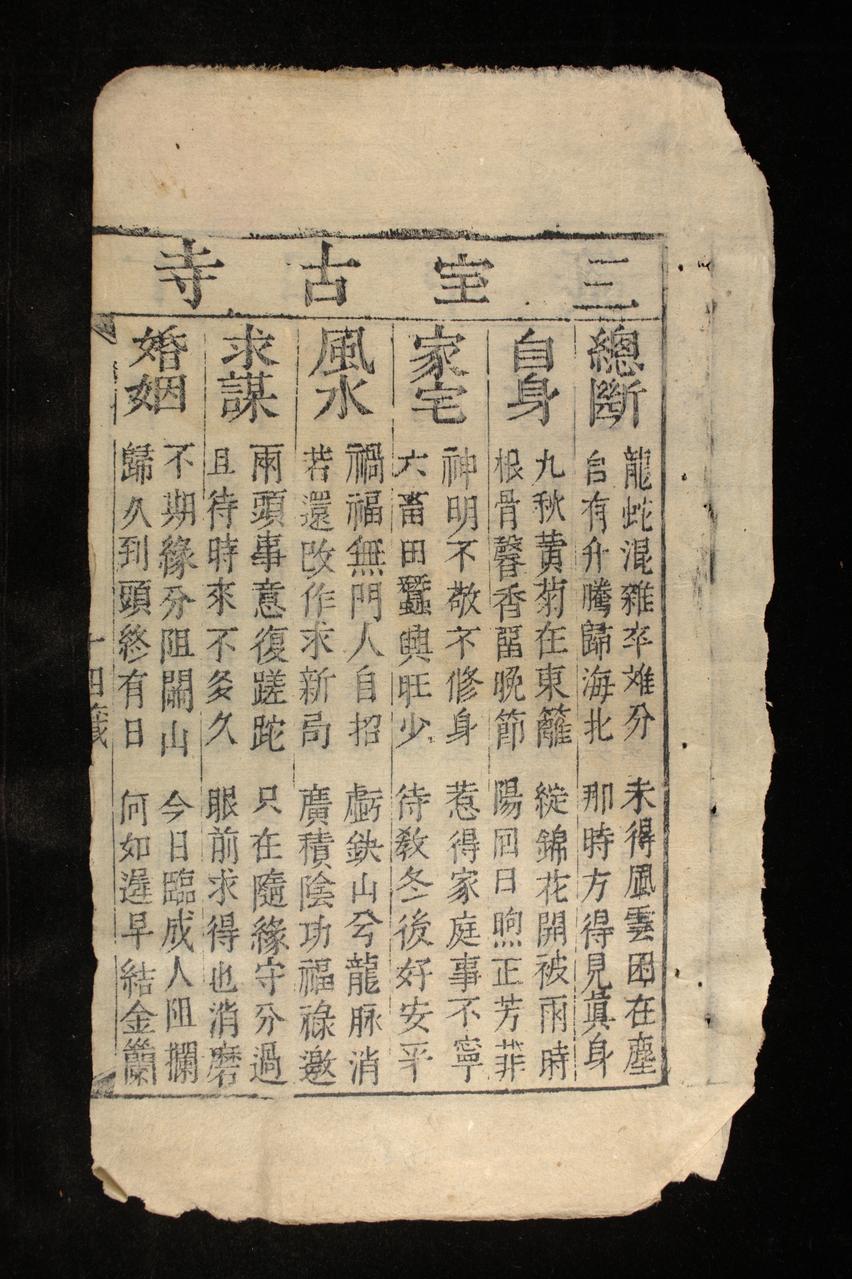 三宝古寺
總斷
龍蛇混雜卒难分 未得風雲困在塵
台有升騰歸海北 那時方得見真身
自身
九秋黄菊在東籬 綻錦花開被雨時
根骨馨香畱晚節 陽回日煦正芳菲
家宅
神明不敬不修身 惹得家庭事不寧
六畜田蠶興旺少 待教冬後好安平
風水
禍福無門人自招 虧缺山兮龍脉消
若還改作求新局 廣積陰功福祿邀
求謀
兩頭事意復蹉跎 只在隨緣守分過
且待時來不多久 眼前求得也消磨
婚姻
不期緣分阻關山 今日臨成人阻攔
歸久到頭終有日 何如遲早結金蘭
十四籤